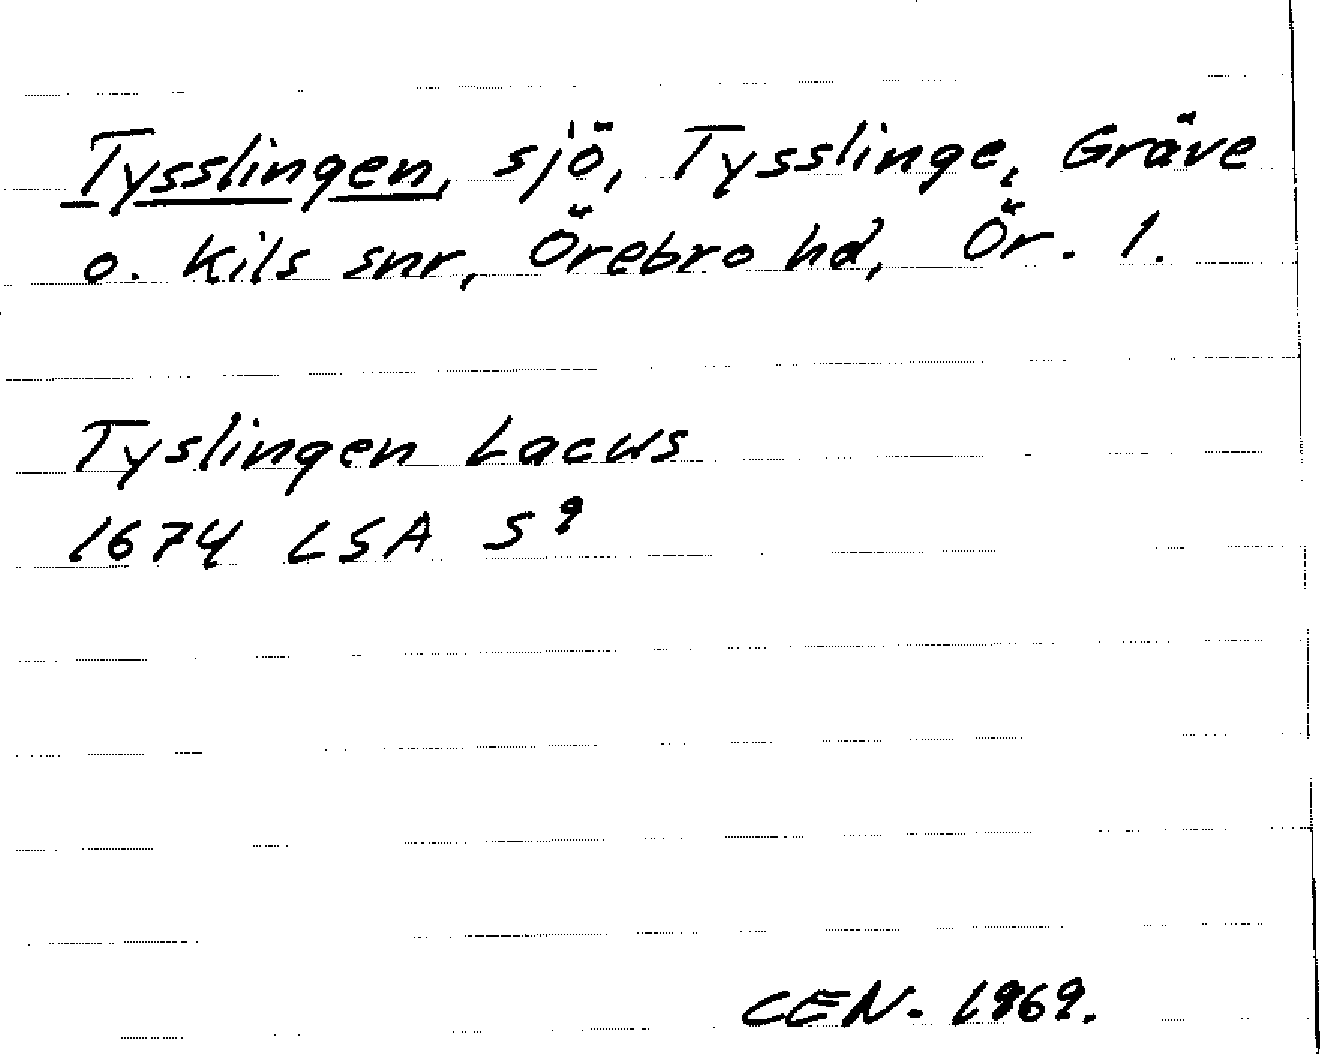 Tysslingen, sjö, Tysslinge, Gräve
o. Kils snr, Örebro hd, Ör. l.
Tyslingen Lacus
1674 LSA S⁹
CEN. 1969.